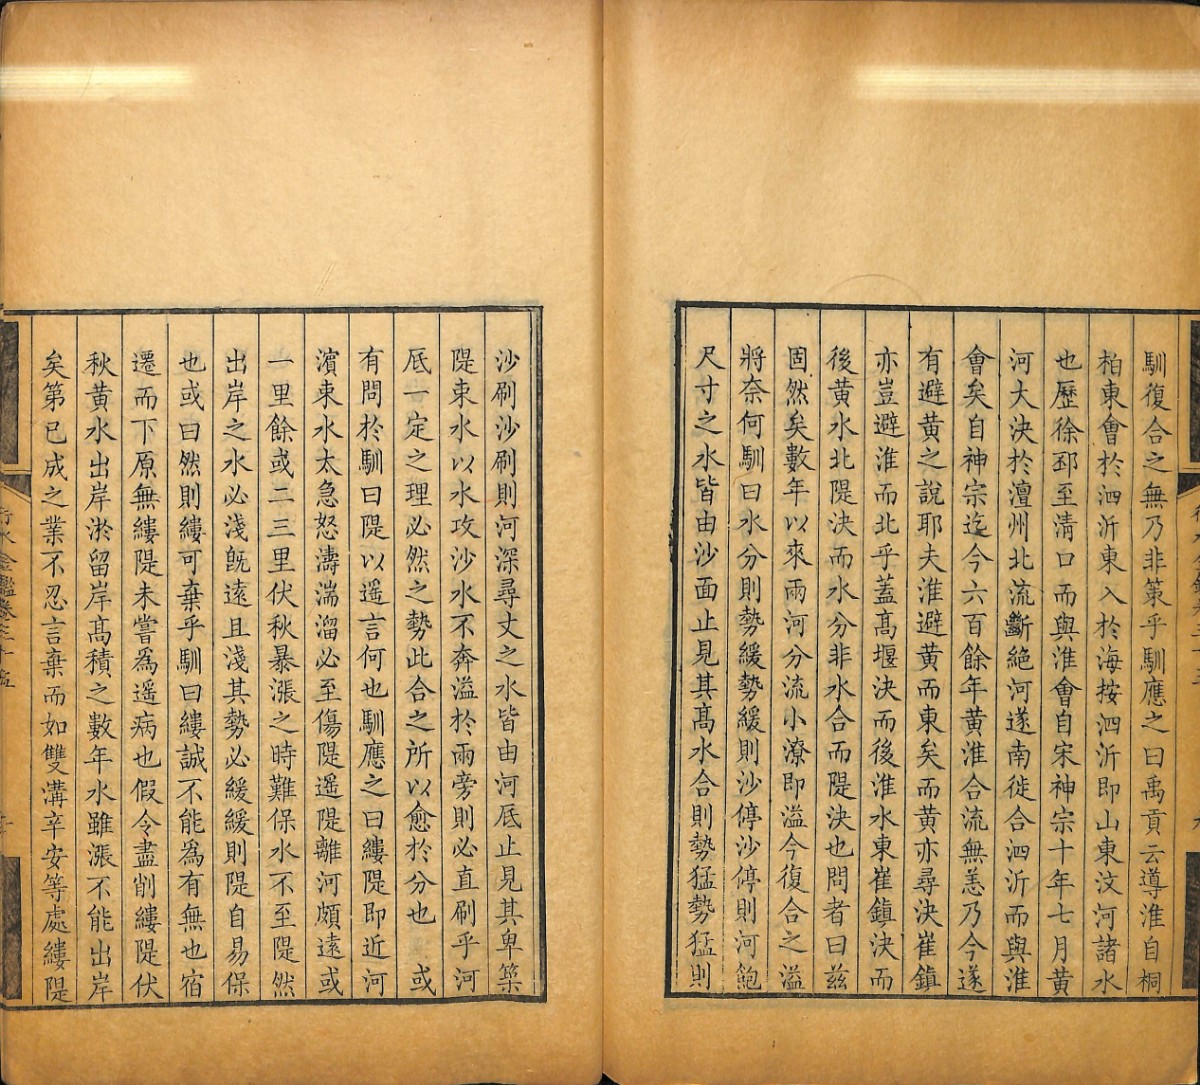 馴復合之無乃非策乎馴應之曰禹貢云導淮自桐
柏東會於泗沂東入於海按泗沂即山東汶河諸水
也歷徐邳至清口而與淮會自宋神宗十年七月黃
河大決於澶州北流斷絕河遂南徙合泗沂而與淮
會矣自神宗迄今六百餘年黃淮合流無恙乃今遂
有避黃之說耶夫淮避黃而東矣而黃亦尋決崔鎮
亦豈避淮而北乎蓋高堰決而後淮水東崔鎮決而
後黃水北隄決而水分非水合而隄決也問者曰茲
固然矣數年以來兩河分流小潦即溢今復合之溢
將奈何馴曰水分則勢緩勢緩則沙停沙停則河飽
尺寸之水皆由沙面止見其高水合則勢猛勢猛則
沙刷沙刷則河深尋丈之水皆由河底止見其卑築
隄束水以水攻沙水不奔溢於兩旁則必直刷乎河
底一定之理必然之勢此合之所以愈於分也　或
有問於馴曰隄以遥言何也馴應之曰縷隄即近河
濱束水太急怒濤湍溜必至傷隄遥隄離河頗遠或
一里餘或二三里伏秋暴漲之時難保水不至隄然
出岸之水必淺旣遠且淺其勢必緩緩則隄自易保
也或曰然則縷可棄乎馴曰縷誠不能爲有無也宿
遷而下原無縷隄未嘗爲遥病也假令盡削縷隄伏
秋黃水出岸淤留岸高積之數年水雖漲不能出岸
矣第已成之業不忍言棄而如雙溝辛安等處縷隄
行水金鑑卷三十五